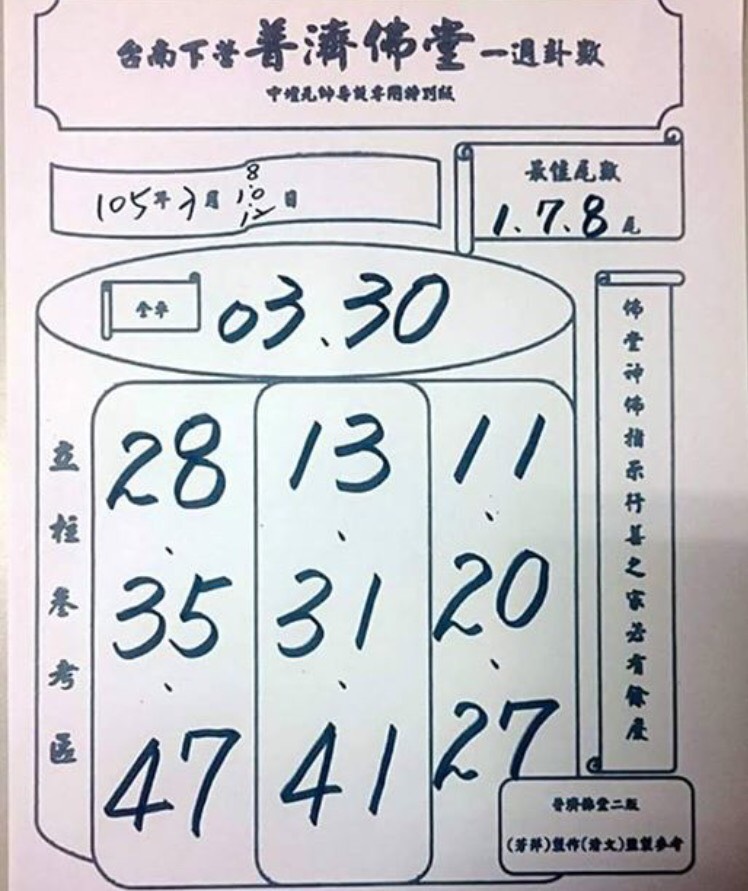 台南下營普濟佛堂一週卦數
中壇元帥委設專用特別版
105年3月8.10.12日
最佳尾數
1.7.8尾
全車
03.30
立柱參考區
28、35、47
13、31、41
11、20、27
佛堂神佛指示行善之家必有餘慶
普濟佛堂二版
(芳萍)製作(清文)監製參考